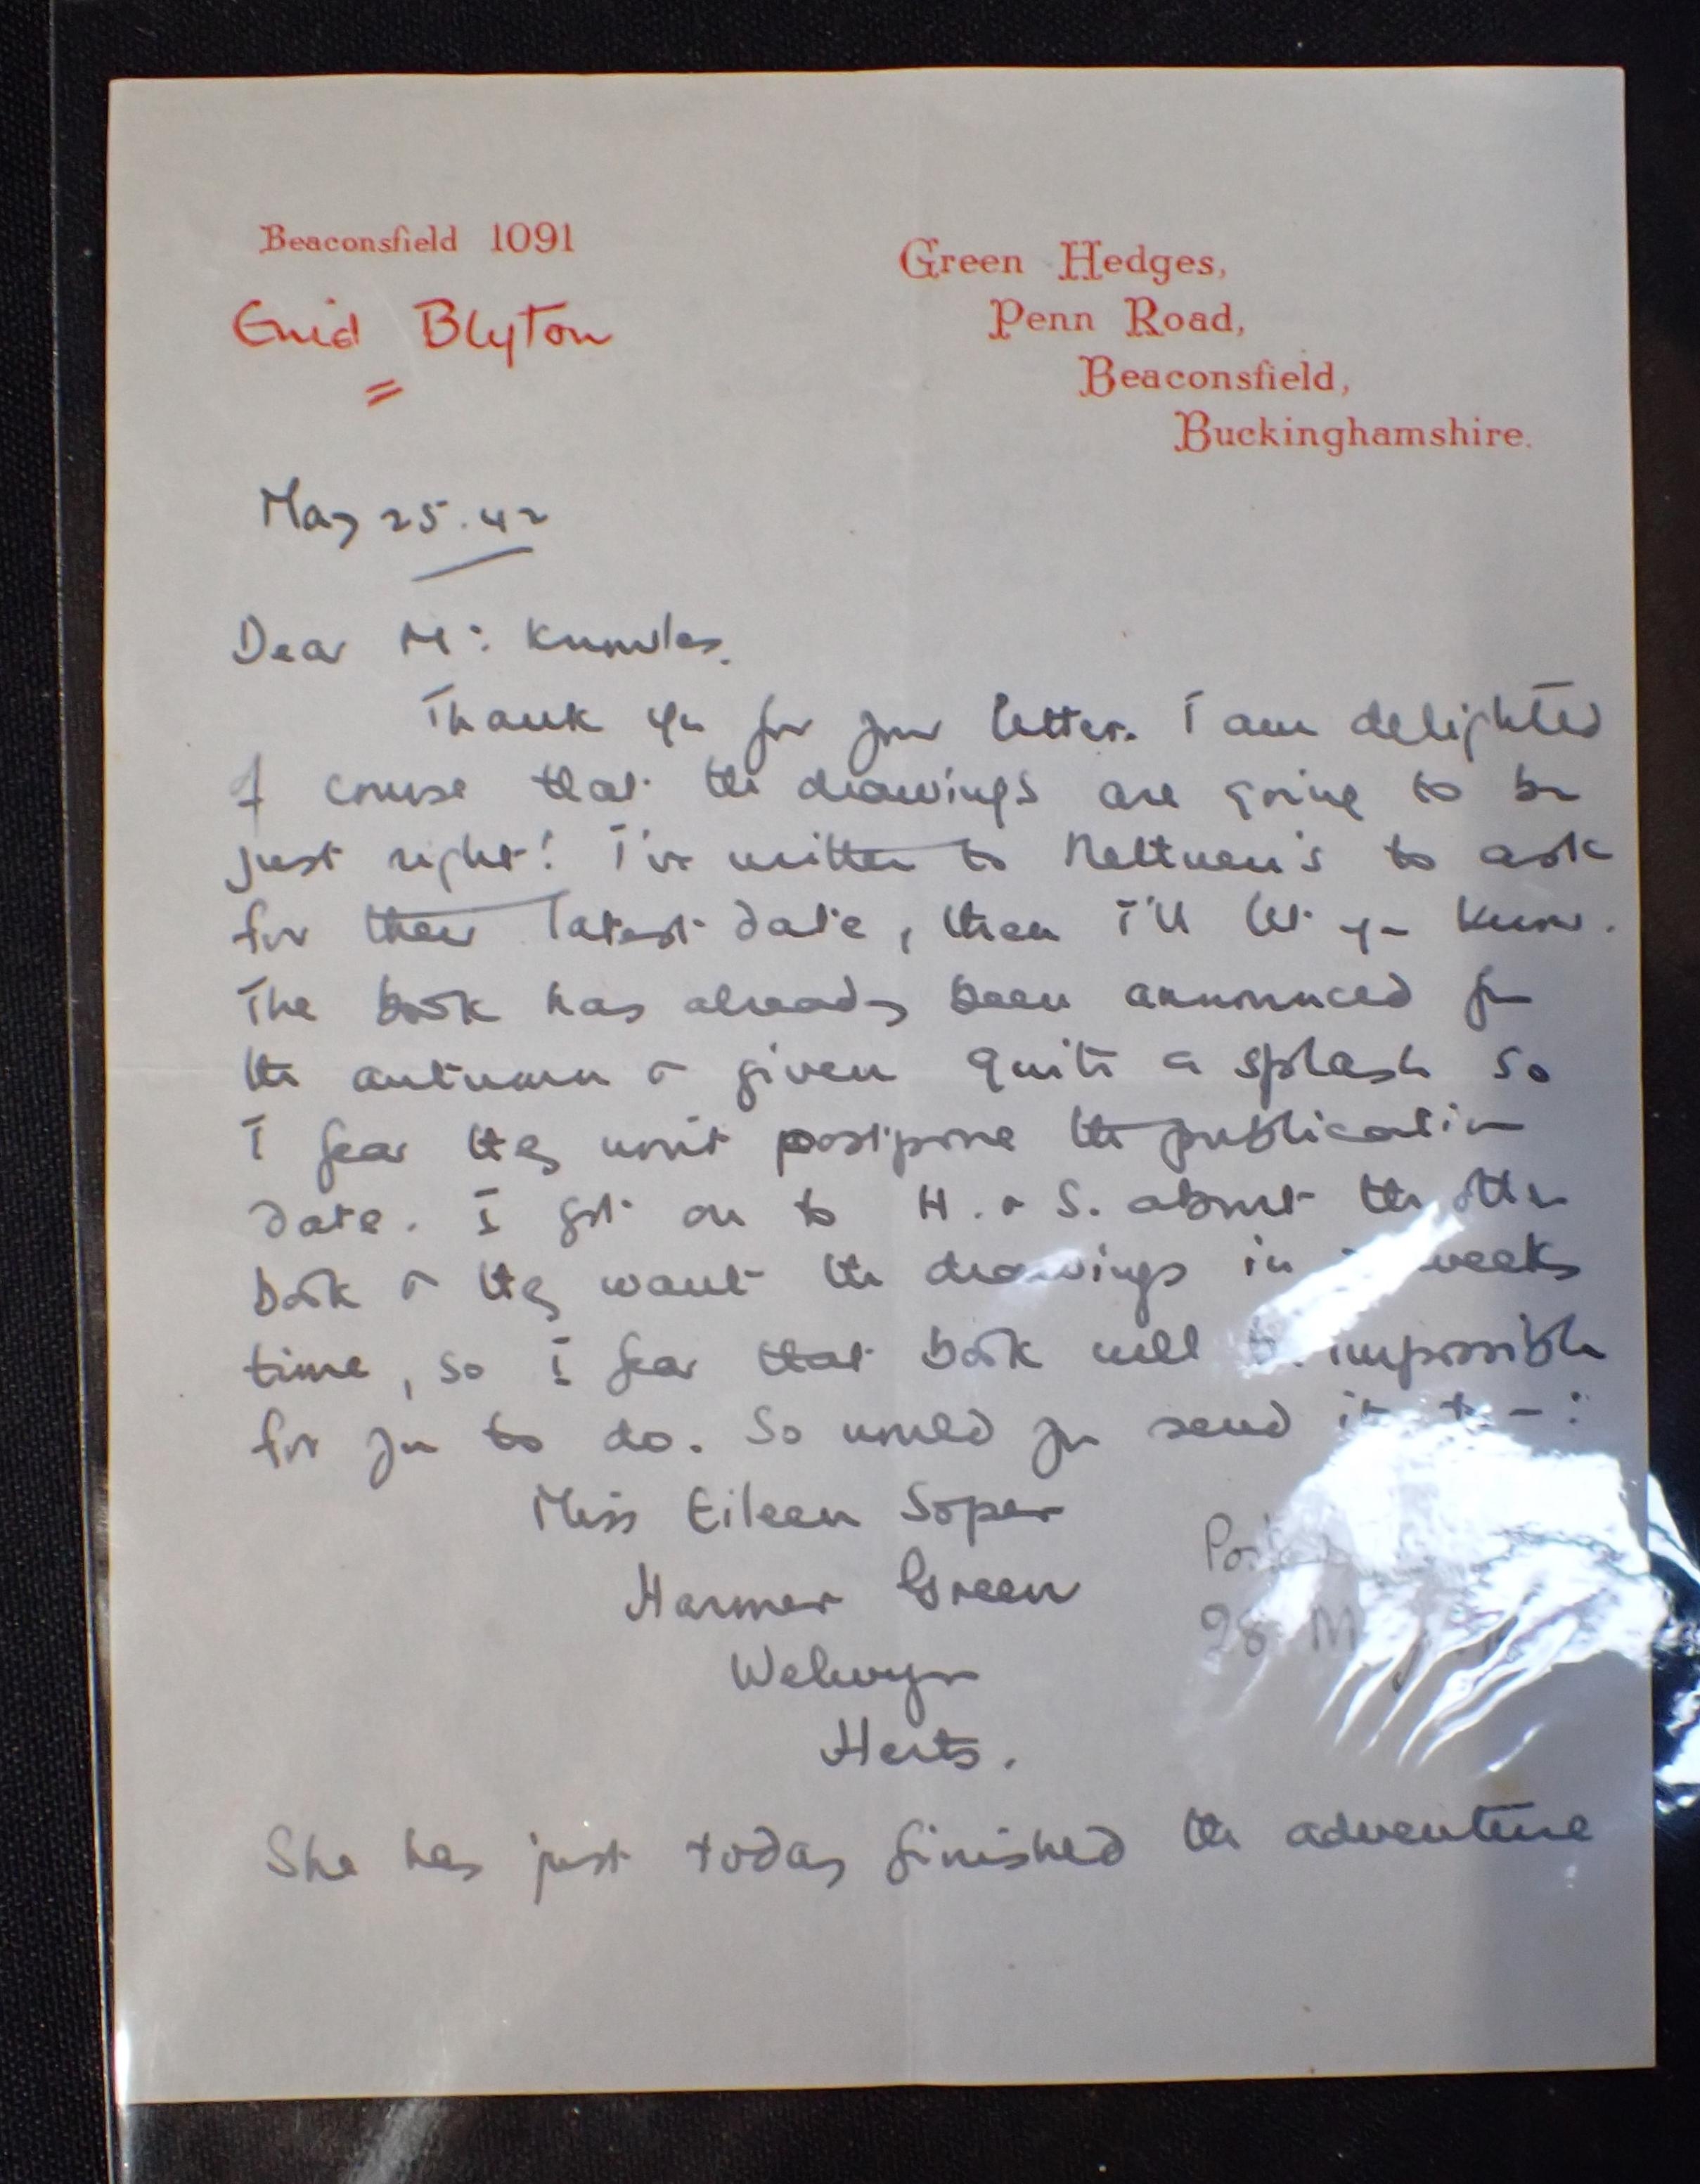 Beaconsfield 1091
Enid Blyton
Green Hedges,
Penn Road,
Beaconsfield,
Buckinghamshire.
May 25. 42
Dear Mr: Knowles.
Thank you for your letter. I am delighted
of course that the drawings are going to be
just right! I've written to Methuen's to ask
for their latest date, then I'll let you know.
The book has already been announced for
the autumn & given quite a splash so
I fear they won't postpone the publication
date. I got on to H. & S. about the other
book & they want the drawings in weeks
time, so I fear that book will be impossible
for you to do. So would you send it to -:
Miss Eileen Soper
Harmer Green
Welwyn
Herts.
28 M
She has just today finished the adventure